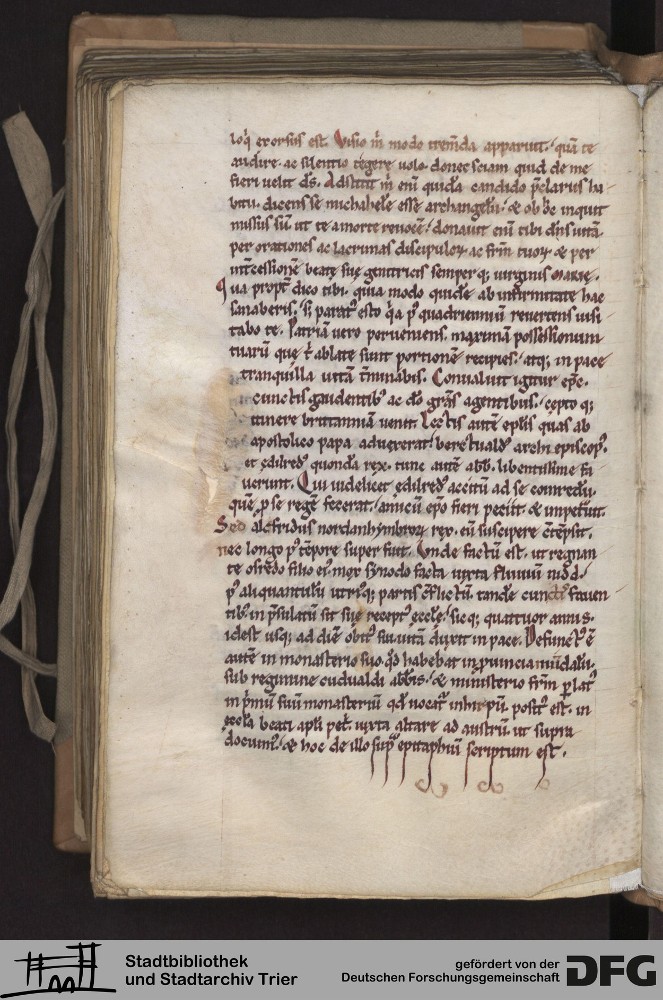 loq̇ exorsus est. Visio m̄ modo trem̄da apparuit. quā te
audire. ac silentio tegere uolo. donec sciam quid de me
fieri uelit d̄s. Adstitit m̄ eni quidā candido p̄clarus ha
bitu. dicens se michahele esse archangelū. & ob hoc inquit
missus sū ut te a morte reuocē. donauit enī tibi dn̄s uitā
per orationes ac lacrimas discipuloꝝ ac fr̄m tuoꝝ. & per
int̄cessionē beatę suę genitricis semperq; uirginis marię.
Qua propt̄ dico tibi. quia modo quidē ab infirmitate hac
sanaberis. s; parat᷒ esto q̇a p᷒ quadriennium reuertens uisi
tabo te. Patriam uero perueniens. maximā possessionum
tuarū que t̄ ablate sunt portionē recipies. atq; in pace
tranquilla uitā t̄minabis. Conualuit igitur ep̄c.
cunctis gaudentib᷒ ac do gr̄as agentibus. cepto q;
itinere brittanniā uenit. Lectis autē ep̄lis quas ab
apostolico papa aduexerat. beretuald᷒ archi episcop᷒.
et ędilred᷒ quondā rex. tunc autē abb. libentissime fa
uerunt. Qui uidelicet ędilred᷒ accitū ad se coinredū.
quē p̱ se regē fecerat. amicū ep̄o fieri peciit. & impetrauit.
Sed alcfridus nordanhymbroꝝ rex. eū suscipere c̄tēpsit.
nec longo p᷒ tēpore super fuit. Unde factū est. ut regnan
te osredo filio ei᷒ mox synodo facta iuxta fluuiū nidd.
p᷒ aliquantulū utriusq; partis c̄flictū. tandē cunctis fauen
tib᷒ in p̄sulatū sit suę recept᷒ ecclę. sicq; quattuor annis.
idest usq; ad diē obit᷒ sui uitā duxit in pace. Defunct᷒ ē
autē in monasterio suo. qd̄ habebat in prouincia undalū.
sub regimine cudualdi abb̄is. & ministerio fr̄m ꝑlat᷒
in p̄mū suū monasteriū qd̄ uocat᷑ inhripū. posit᷒ est. in
eccla beati apl̄i pet̄. iuxta altare ad austrū. ut supra
docuim᷒. & hoc de illo sup̱ epitaphiū scriptum est.
Stadtbibliothek
und Stadtarchiv Trier
gefördert von der
Deutschen Forschungsgemeinschaft
DFG